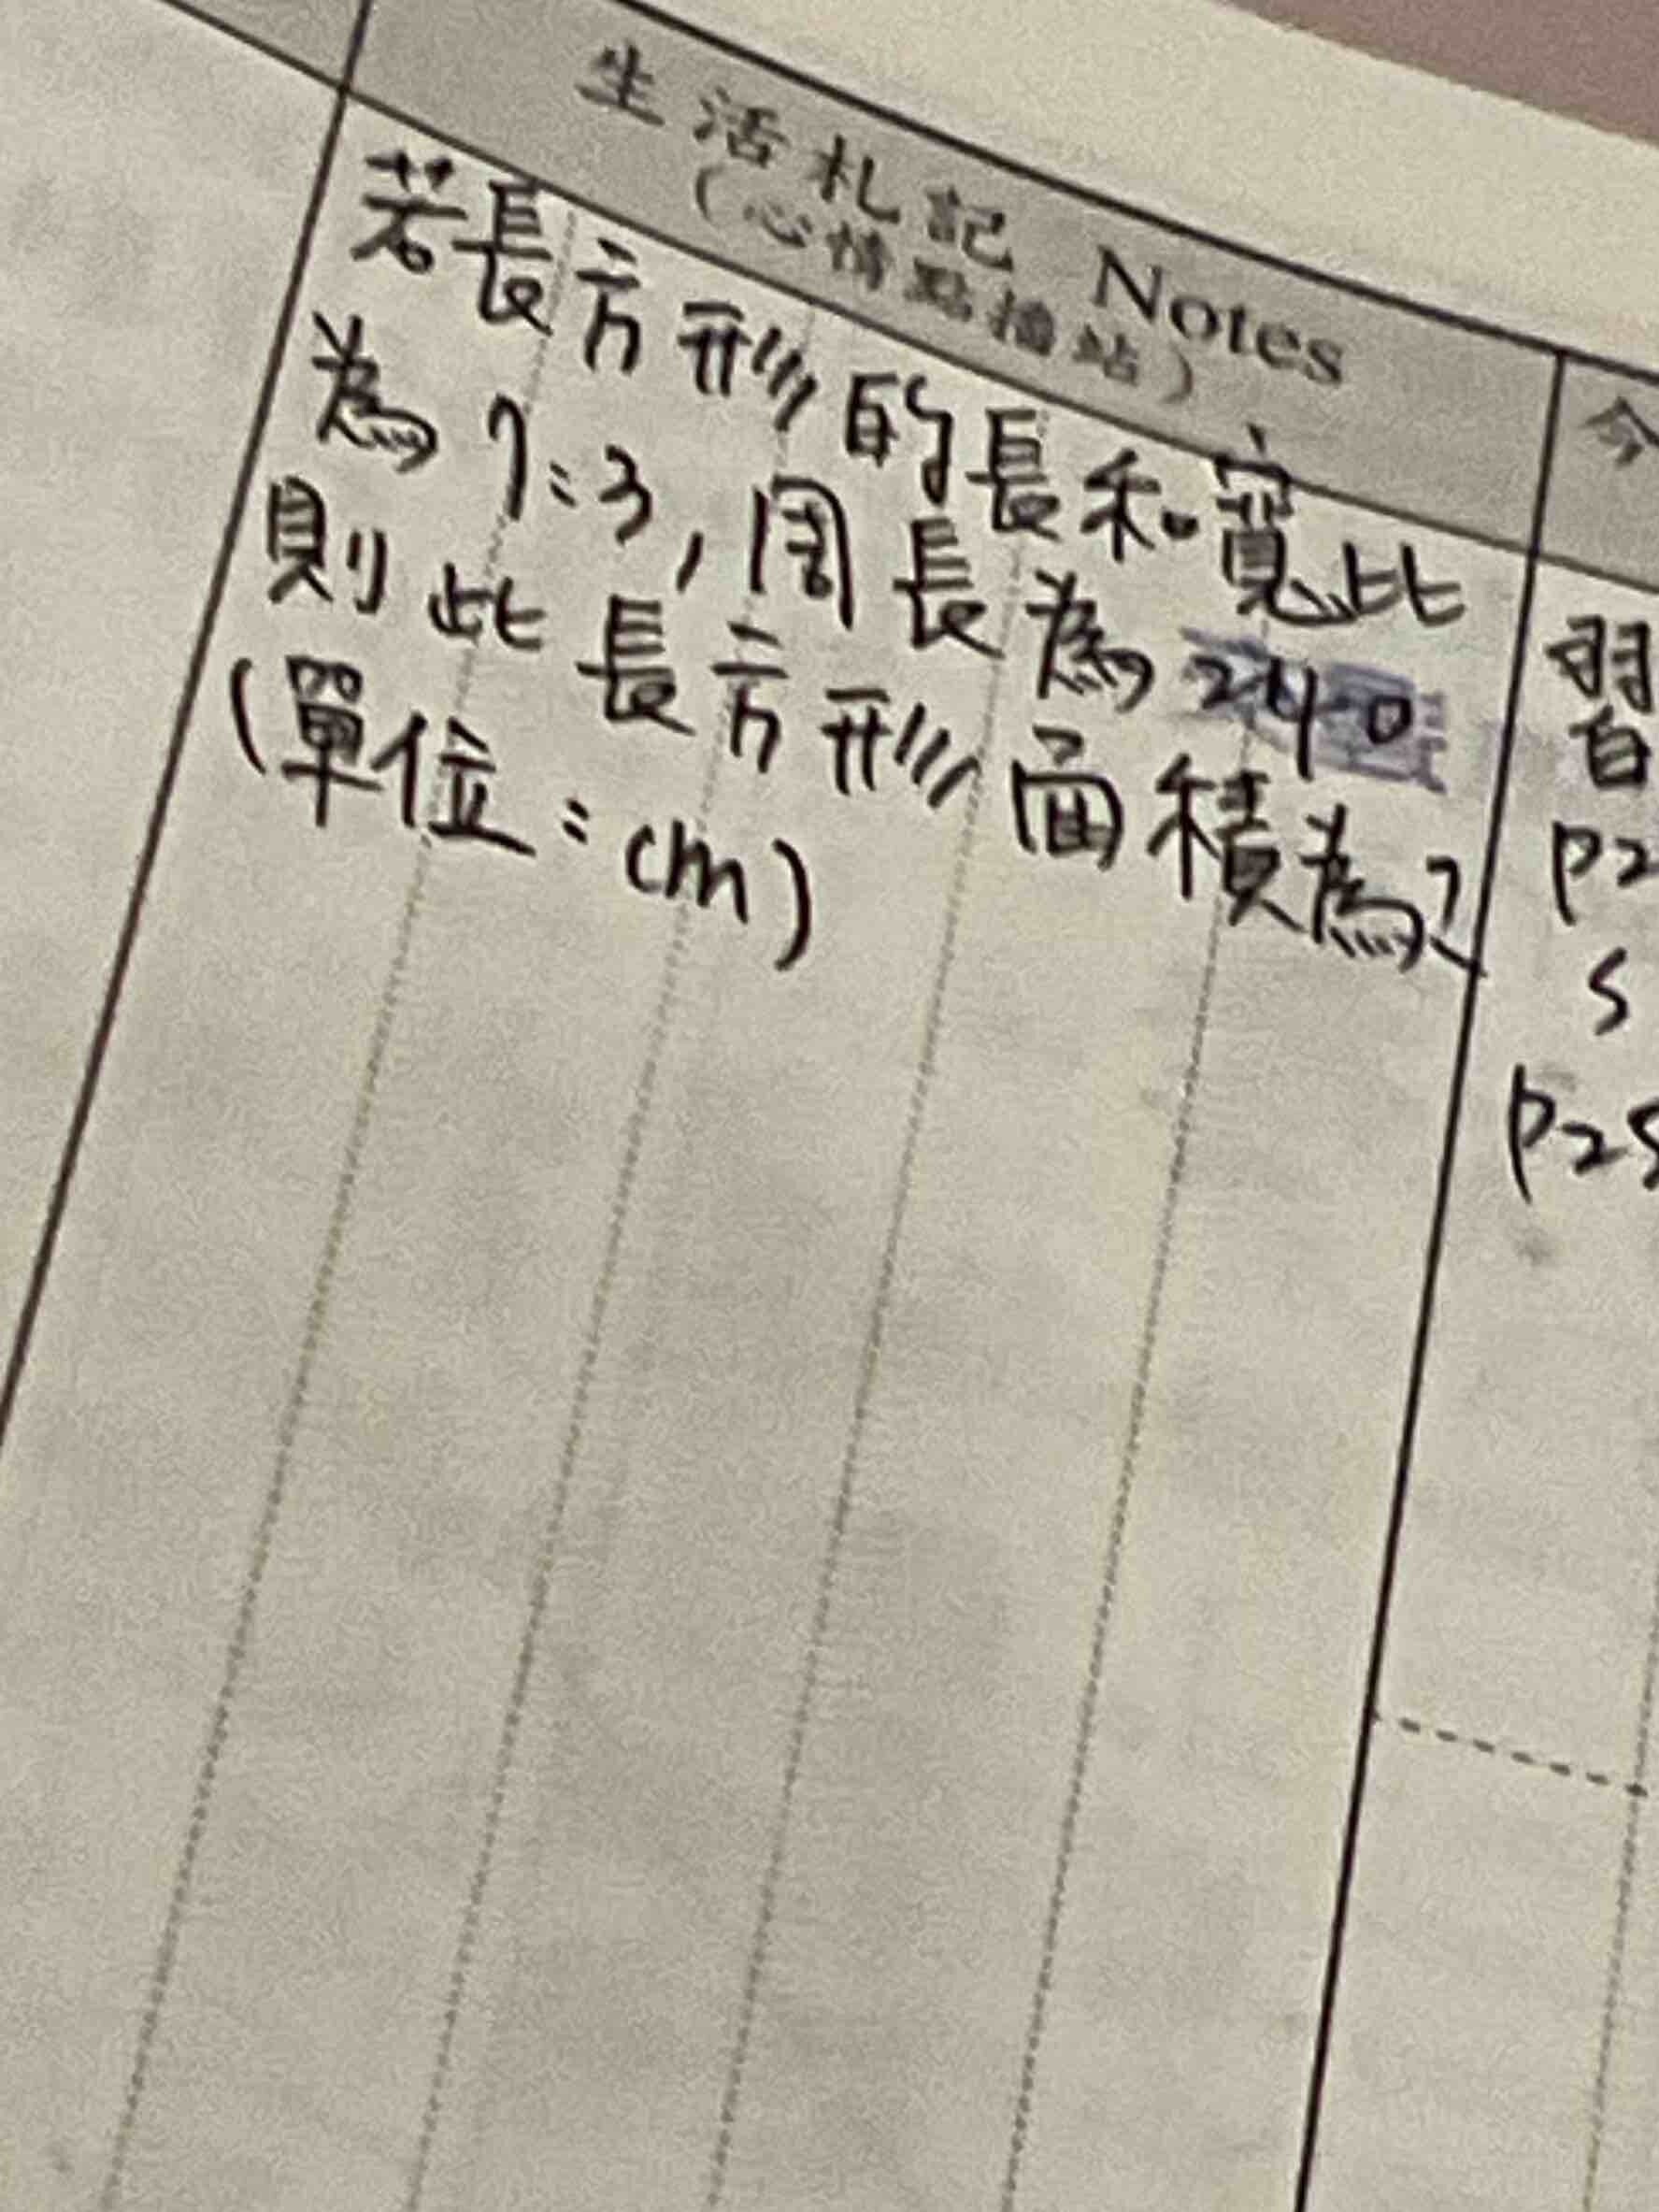 生活札記 Notes
(心情點播站)
若長方形的長和寬比
為7:3,周長為240
則此長方形面積為?
(單位:cm)
今
習
P2
S
P25